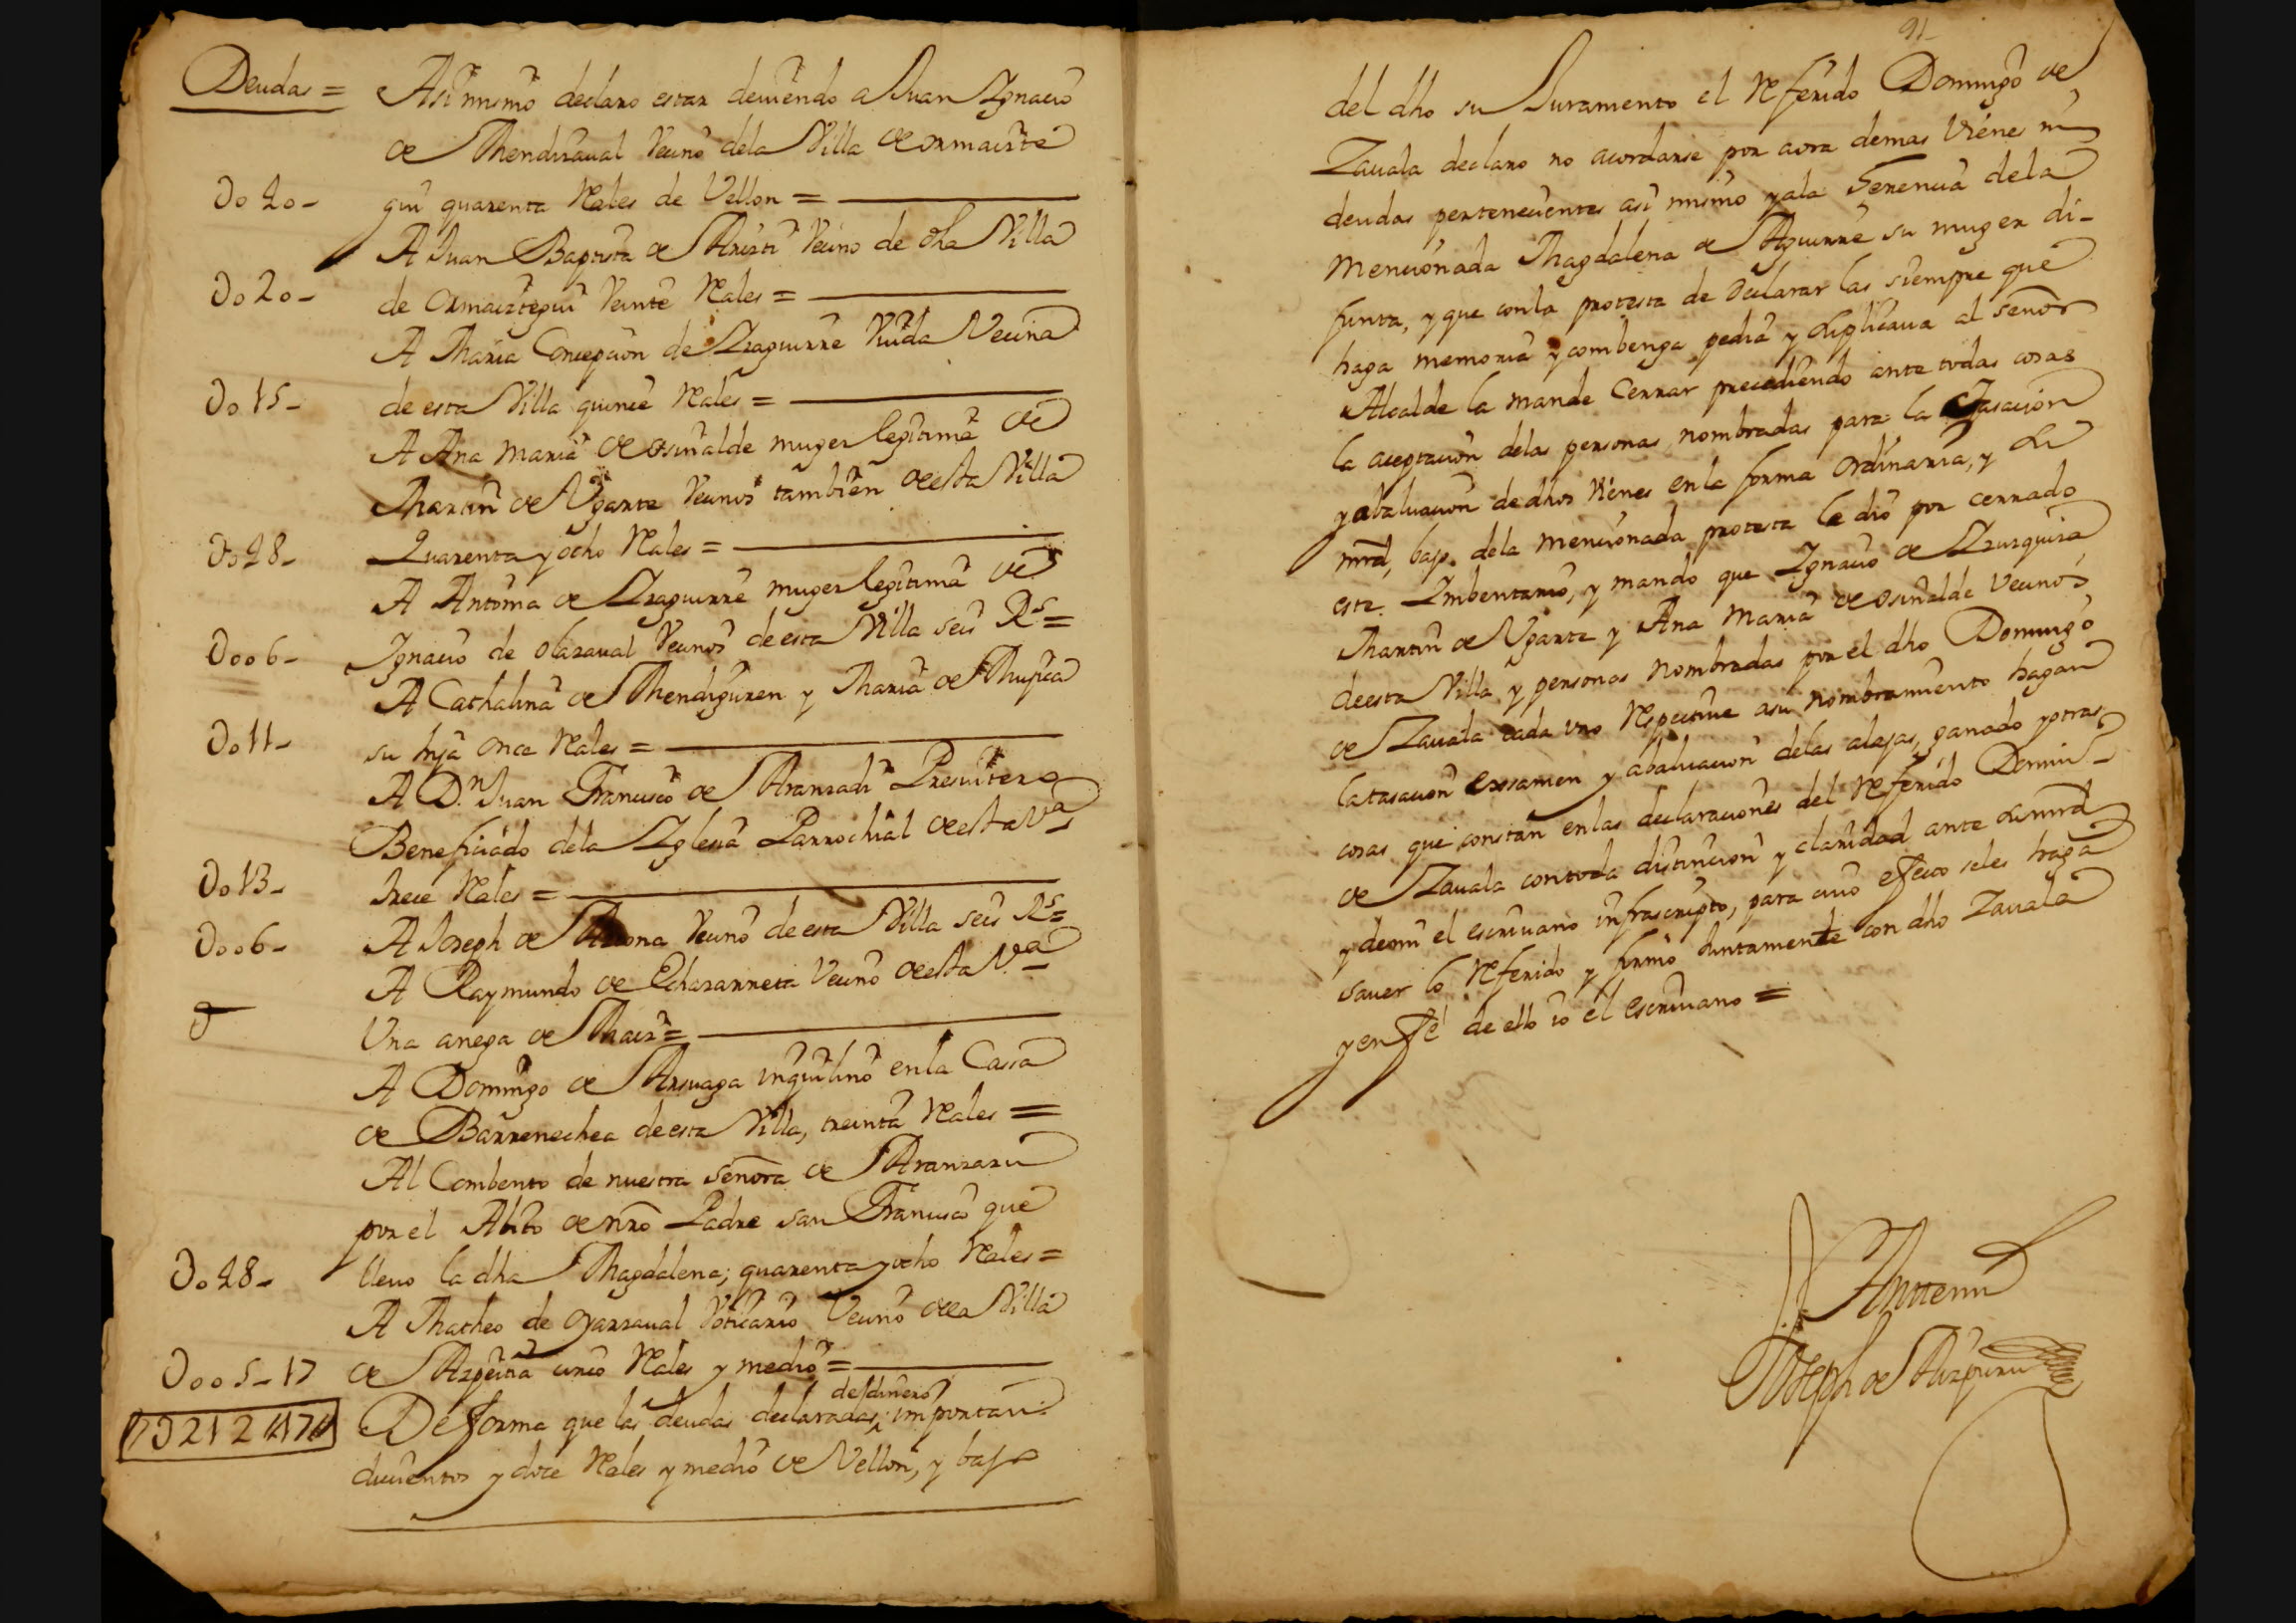 Deudas = Asi mismo declaro estar deuiendo a Juan Ignacio
de Mendizaual Vecino dela Villa de ormaizte
Do40- gui quarenta Reales de Vellon =
A Juan Baptista de Aristi Vecino de dha Villa
Do20- de Ormaiztegui Veinte Reales =
A Maria Concepcion de Yzaguirre Viuda Vecina
Do15- de esta Villa quince Reales =
A Ana Maria de osinalde muger legitima de
Martin de Vgarte Vecinos tambien de esta Villa
Do48- Quarenta y ocho Reales =
A Antonia de Yzaguirre muger legitima de
Doo6- Ignacio de olazaual Vecinos de esta Villa seis Rs=
A Cathalina de Mendiguren y Maria de Mugica
Do11- su hija once Reales =
A Dn Juan Francisco de Aranzadi Presuitero
Beneficiado dela Yglesia Parrochial de esta Va
Do13- trece Reales =
Doo6- A Joseph de Vecino de esta Villa seis Rs=
A Raymundo de Echazarreta Vecino de esta Va
Vna anega de Maiz =
A Domingo de Arsuaga inquilino en la Cassa
de Barrenechea de esta Villa, treinta Reales =
Al Combento de nuestra señora de Aranzazu
por el Abito de nro Padre san Francisco que
Do48- lleuo la dha Magdalena; quarenta y ocho Reales =
A Matheo de oyarzaual Voticario Vecino dela Villa
Doo5-17 de Azpeitia cinco Reales y medio =
de dinero
D212 17 De forma que las deudas declaradas importan
ducientos y doce Reales y medio de Vellon, y bajo
91
del dho su Juramento el Referido Domingo de
Zauala declaro no acordarse por aora demas Vienes ni
deudas pertenecientes asi mismo y ala herencia dela
mencionada Magdalena de Aguirre su muger di-
funta, y que con la protesta de declarar las siempre que
haga memoria y combenga pedia y suplicaua al señor
Alcalde la mande cerrar precediendo ante todas cosas
la aceptacion delas personas nombradas para la tasacion
y abaluacion de dhos Vienes en la forma ordinaria, y su
mrd, bajo dela mencionada protesta le dio por cerrado
este Imbentario, y mando que Ignacio de Yzurquiza
Martin de Vgarte y Ana Maria de osinalde Vecinos
de esta Villa y personas nombradas por el dho Domingo
de Zauala cada uno Respectiue asu nombramiento hagan
la tasacion exsamen y abaluacion delas alajas, ganado y otras
cosas que constan en las declaraciones del Referido Domin
de Zauala con toda distincion y claridad ante su mrd
y de mi el escriuano infrascripto, para cuio efecto seles haga
sauer lo Referido y firmo Juntamente con dho Zauala
y en fe de ello io el escriuano =
Antemi
Joseph de Aizpuru